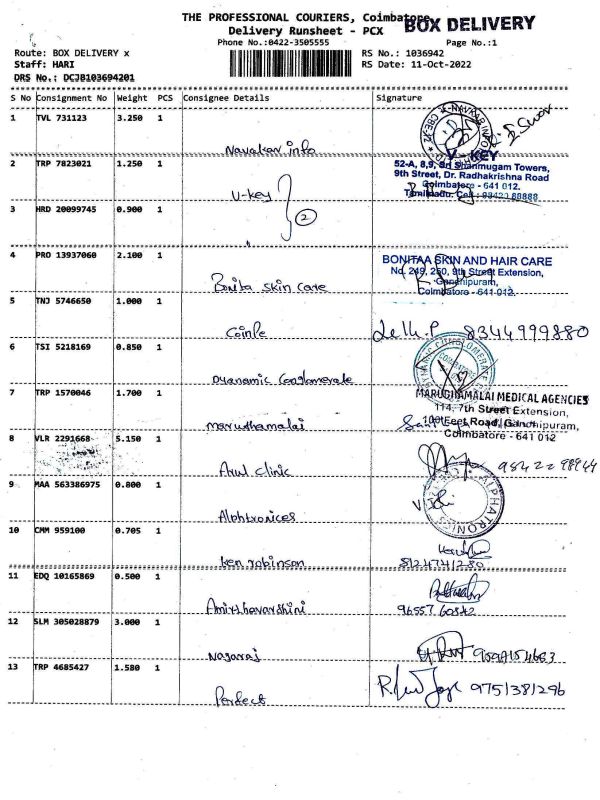 THE PROFESSIONAL COURIERS, Coimbatore
BOX DELIVERY
Delivery Runsheet - PCX
Phone No.:0422-3505555
Page No.:1
Route: BOX DELIVERY x
RS No.: 1036942
Staff: HARI
RS Date: 11-Oct-2022
DRS No.: DCJB103694201
S No Consignment No Weight PCS Consignee Details Signature
1 TVL 731123 3.250 1
Navakar info
2 TRP 7823021 1.250 1
V-KEY
52-A, 8,9, Sri Shanmugam Towers,
9th Street, Dr. Radhakrishna Road
Coimbatore - 641 012.
Tamilnadu. Cell: 98423 88888
U-key
2
3 HRD 20099745 0.900 1
4 PRO 13937060 2.100 1
BONITAA SKIN AND HAIR CARE
No. 249, 250, 9th Street Extension,
Gandhipuram,
Coimbatore - 641 012.
Bonita skin care
5 TNJ 5746650 1.000 1
Coinle
8344999880
6 TSI 5218169 0.850 1
Dyanamic Conglomerate
7 TRP 1570046 1.700 1
MARUDHAMALAI MEDICAL AGENCIES
114, 7th Street Extension,
100 Feet Road, Gandhipuram,
Coimbatore - 641 012
maruthamalai
8 VLR 2291668 5.150 1
Arul clinic
9 MAA 563386975 0.800 1
ALPHATRONICS
Alphtronices
10 CMM 959100 0.705 1
ken robinson
8124741280
11 EDQ 10165869 0.500 1
Amirthavarshini
96557 60842
12 SLM 305028879 3.000 1
Nagaraj
13 TRP 4685427 1.580 1
9751381296
Perfect